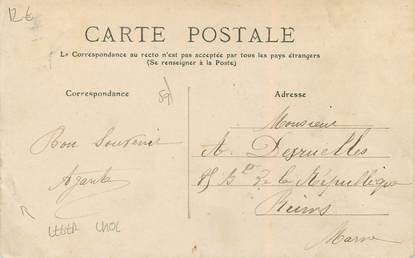 12 €
CARTE POSTALE
La Correspondance au recto n'est pas acceptée par tous les pays étrangers
(Se renseigner à la Poste)
Correspondance
59
Adresse
Monsieur
A. Desruelles
Bd de la République
Reims
Marne
Bon Souvenir
LEGER